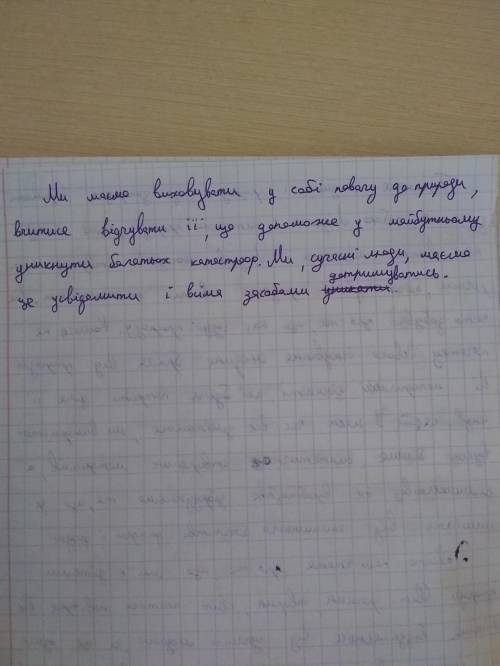 Ми маємо виховувати у собі повагу до природи,
вчитися відчувати її, що допоможе у майбутньому
уникнути багатьох катастроф. Ми, сучасні люди, маємо
це усвідомити і всіма засобами уникати дотримуватись.